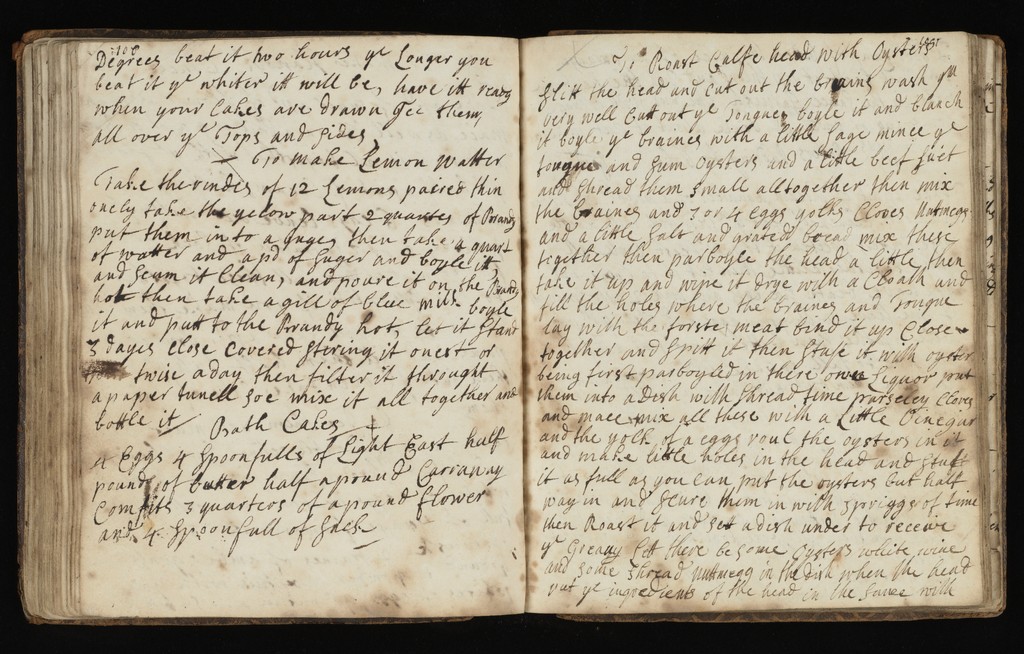 106
Degrees beat it two hours ye Longer you
beat it ye whiter itt will be, have itt ready
when your Cakes are drawn Ice them,
all over ye Tops and sides
To make Lemon watter
Take the rindes of 12 Lemons paired thin
onely take the yelow part 2 quartes of Brandy
put them in to a juge, then take a quart
of watter and a pd of suger and boyle itt,
and scum it Clean, and poure it on the Brandy
hot then take a gill of blee milk boyle
it and putt to the Brandy hot, let it stand
3 dayes Close Covered stering it onest or
twise a day then filter it throught
a paper tunell soe mix it all together and
bottle it
Bath Cakes
4 Eggs 4 spoonfulls of Light East half
pound of butter half a pound Carraway
Comfits 3 quarters of a pound flower
and 4 spoonfull of sack
To Roast Calfe head with Oysters
slitt the head and cut out the brains wash ym
very well cutt out ye Tongue boyle it and blanch
it boyle ye braines with a little sage mince ye
tongue and sum oysters and a little beef suit
and shread them small alltogether then mix
the braines and 3 or 4 eggs yolks Cloves Nutmegs
and a little salt and grated bread mix these
together then parboyle the head a little then
take it up and wipe it drye with a Cloath and
fill the holes where the braines and Tongue
lay with the forste meat bind it up Close
together and spitt it then stuse it with oyster
being first parboyled in there owne Liquor put
them into a dish with shread time parseley Cloves
and mace mix all these with a Little Vinegar
and the yolk of a eggs roul the oysters in it
and make little holes in the head and stuff
it as full as you can put the oysters but half
way in and scure them in with spriggs of time
then Roast it and sett a dish under to receive
ye Greavy lett there be some oysters white wine
and some shread nuttmegg in the dish when the head
put ye ingredients of the head in the sauce with